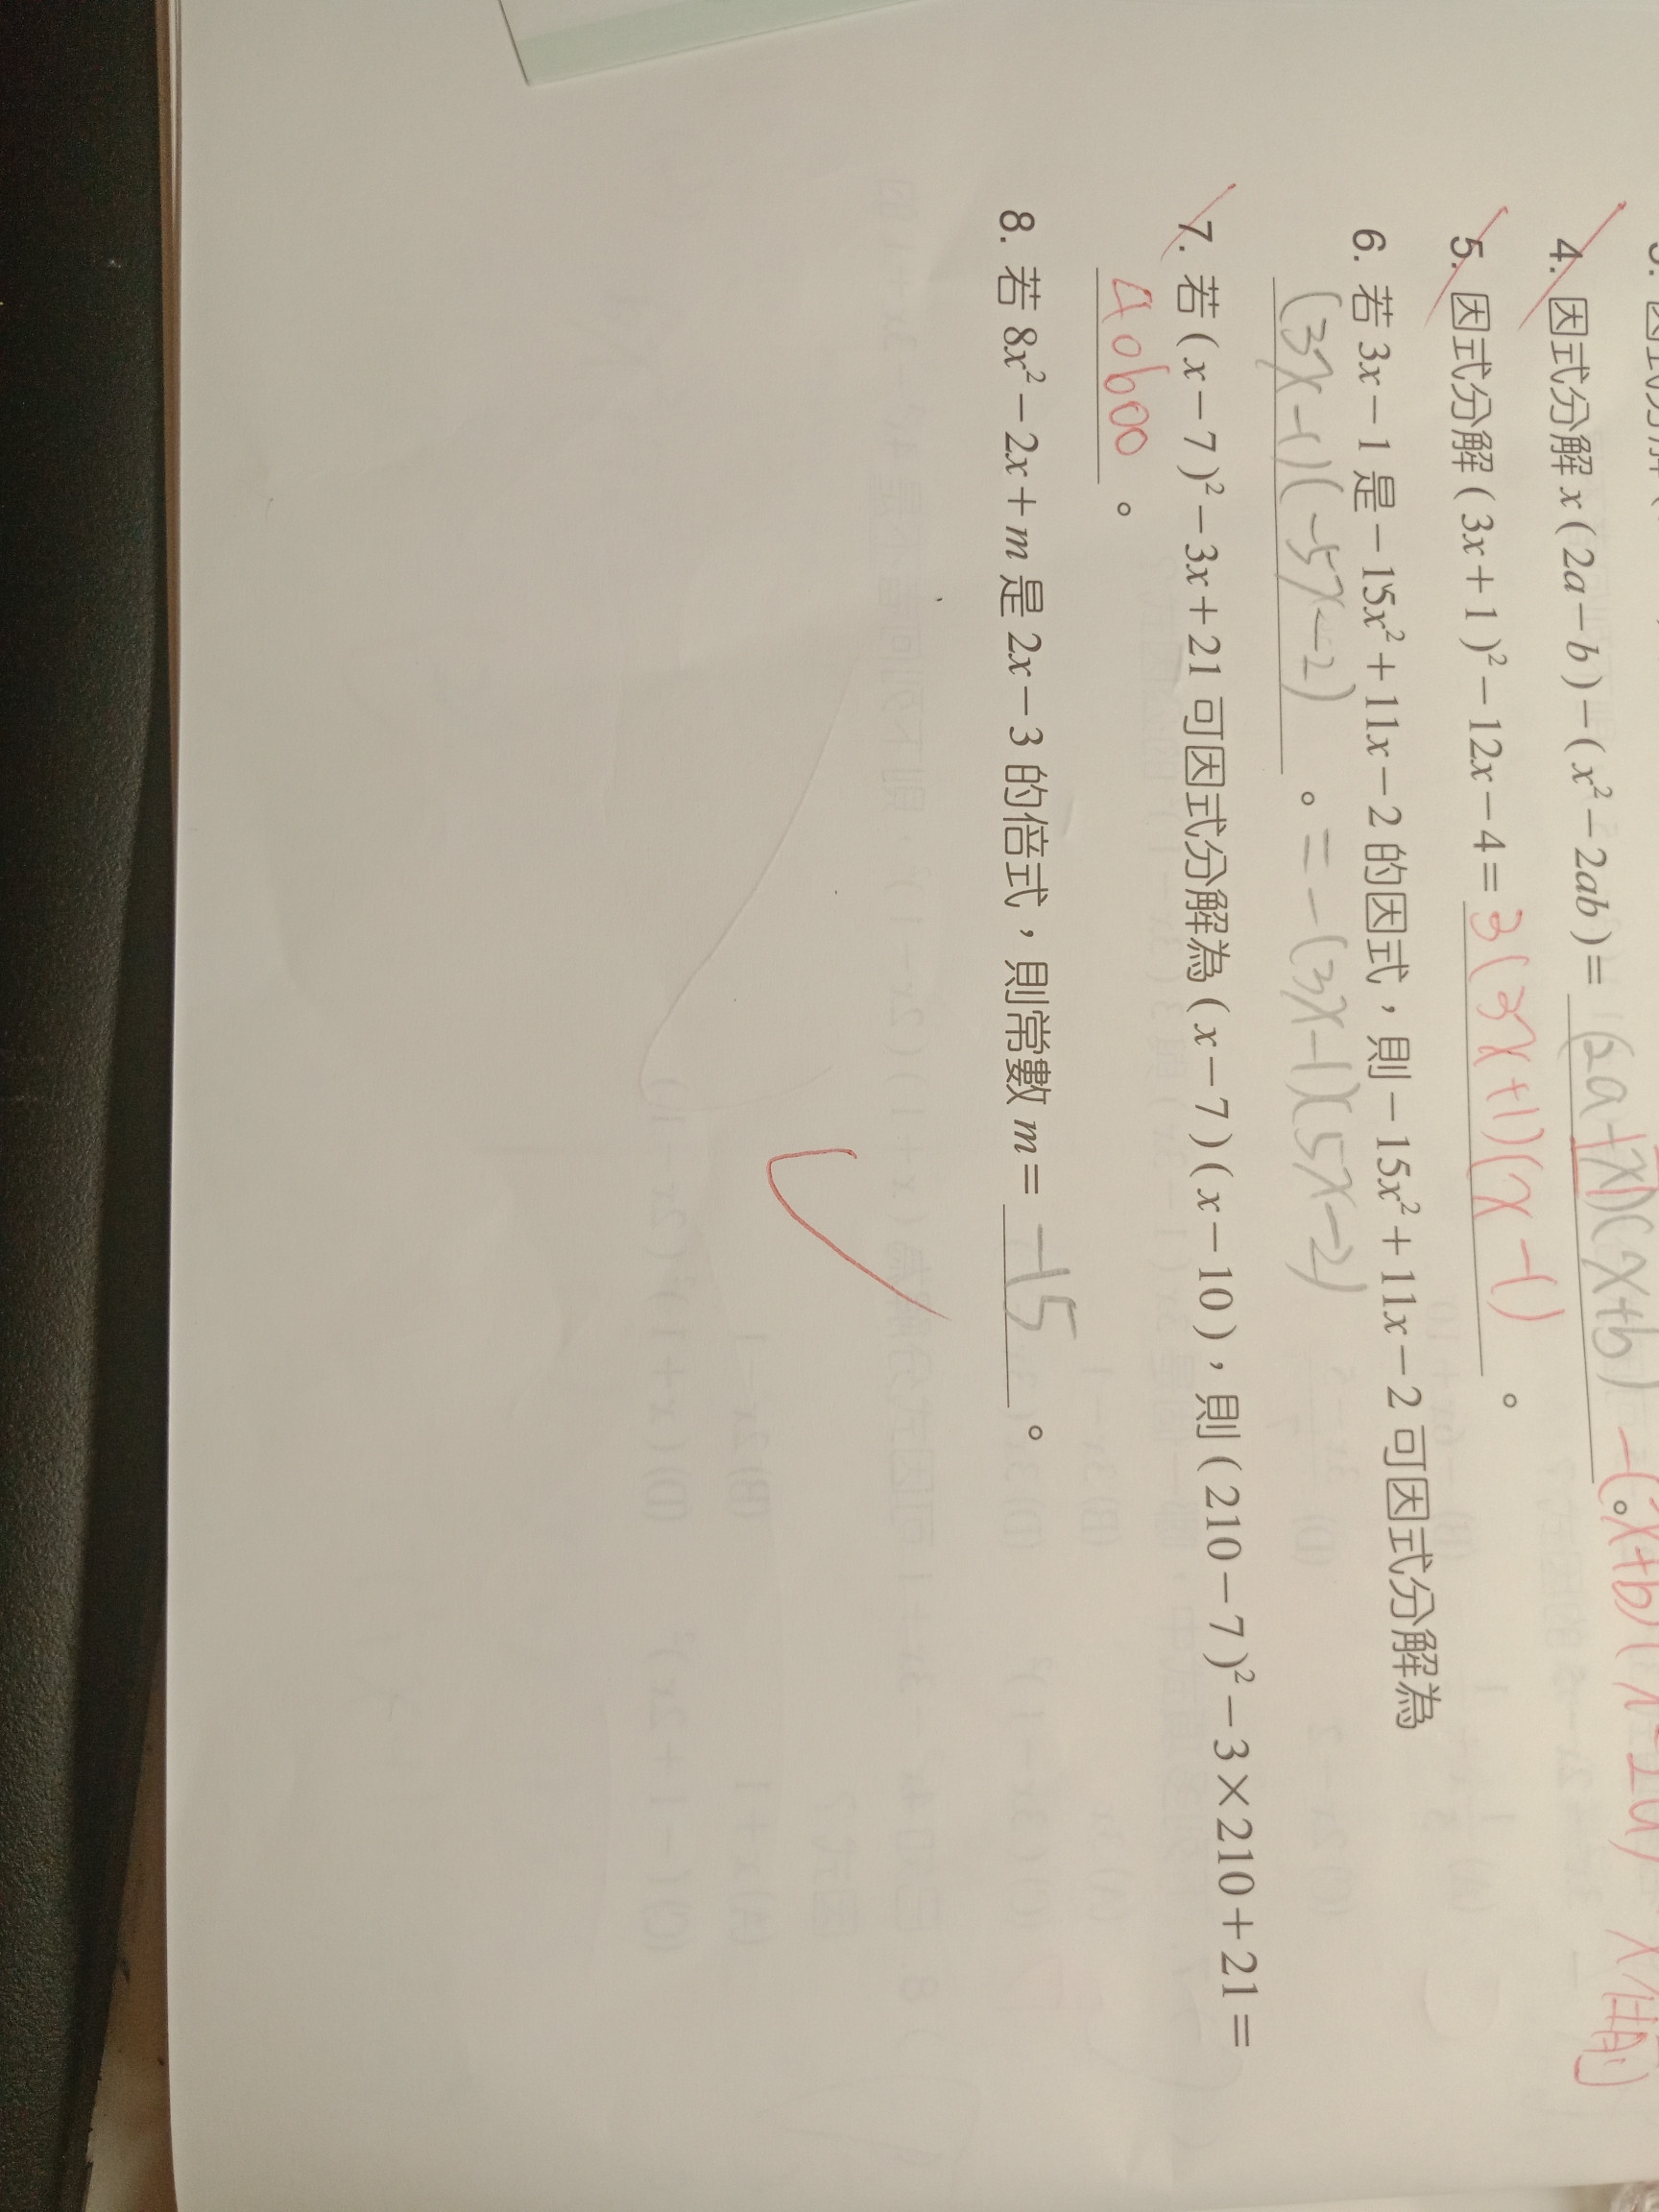 4. 因式分解 x(2a－b)－(x²－2ab)＝ (2a＋x)(x＋b) －(x＋b)(x－2a)
5. 因式分解(3x＋1)²－12x－4＝ 3(3x＋1)(x－1) 。
6. 若 3x－1 是－15x²＋11x－2 的因式，則－15x²＋11x－2 可因式分解為
(3x－1)(－5x－2) 。＝－(3x－1)(5x－2)
7. 若(x－7)²－3x＋21 可因式分解為(x－7)(x－10)，則(210－7)²－3×210＋21＝
40600 。
8. 若 8x²－2x＋m 是 2x－3 的倍式，則常數 m＝ －15 。